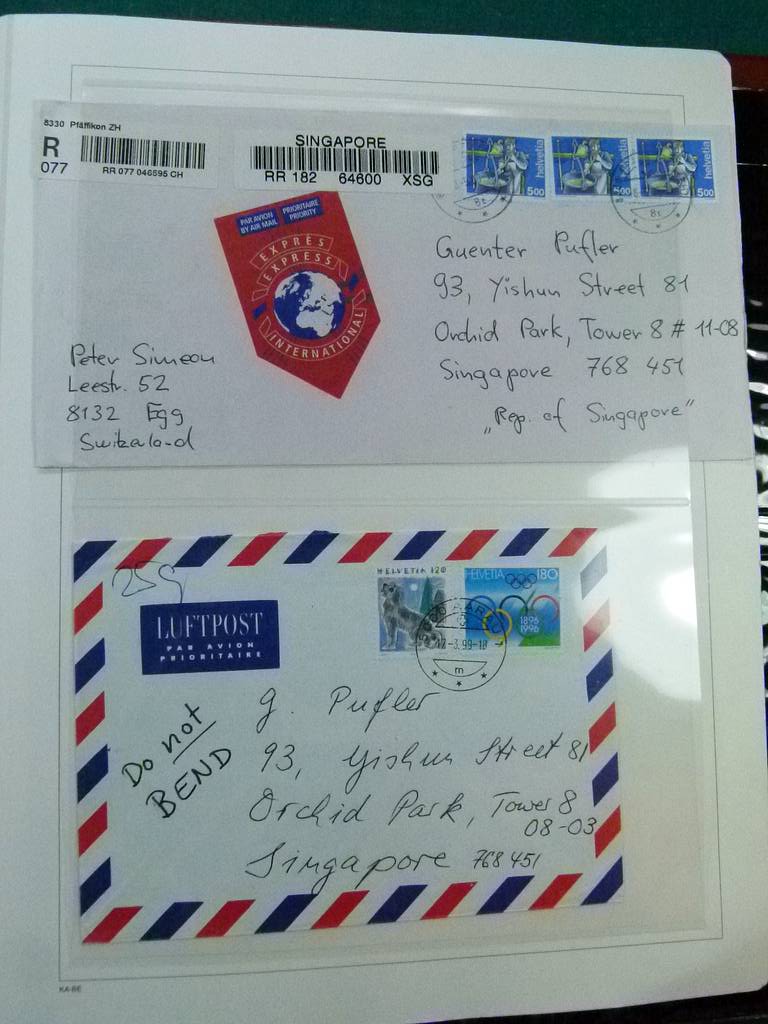 8330 Pfäffikon ZH
R
077
RR 077 046595 CH
SINGAPORE
RR 182 64600 XSG
helvetia
500
helvetia
500
helvetia
500
81
81
PAR AVION
BY AIR MAIL
PRIORITAIRE
PRIORITY
EXPRÈS
EXPRESS
INTERNATIONAL
Guenter Pufler
93, Yishun Street 81
Orchid Park, Tower 8 # 11-08
Singapore 768 451
„Rep. of Singapore"
Peter Simeon
Leestr. 52
8132 Egg
Switzaland
25g
LUFTPOST
PAR AVION
PRIORITAIRE
HELVETIA 120
HELVETIA 180
1896
1996
AARAU
-3.99-18
m
Do not
BEND
G. Pufler
93, Yishun Street 81
Orchid Park, Tower 8
08-03
Singapore 768451
KA-BE